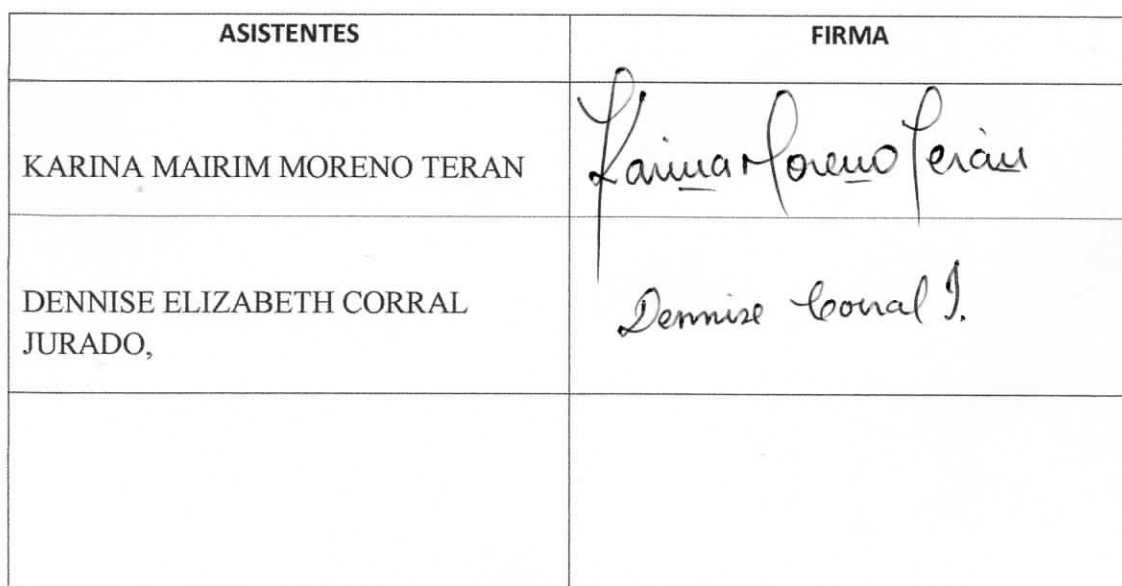 ASISTENTES
FIRMA
KARINA MAIRIM MORENO TERAN
Karina Moreno Terán
DENNISE ELIZABETH CORRAL
JURADO,
Dennise Corral J.